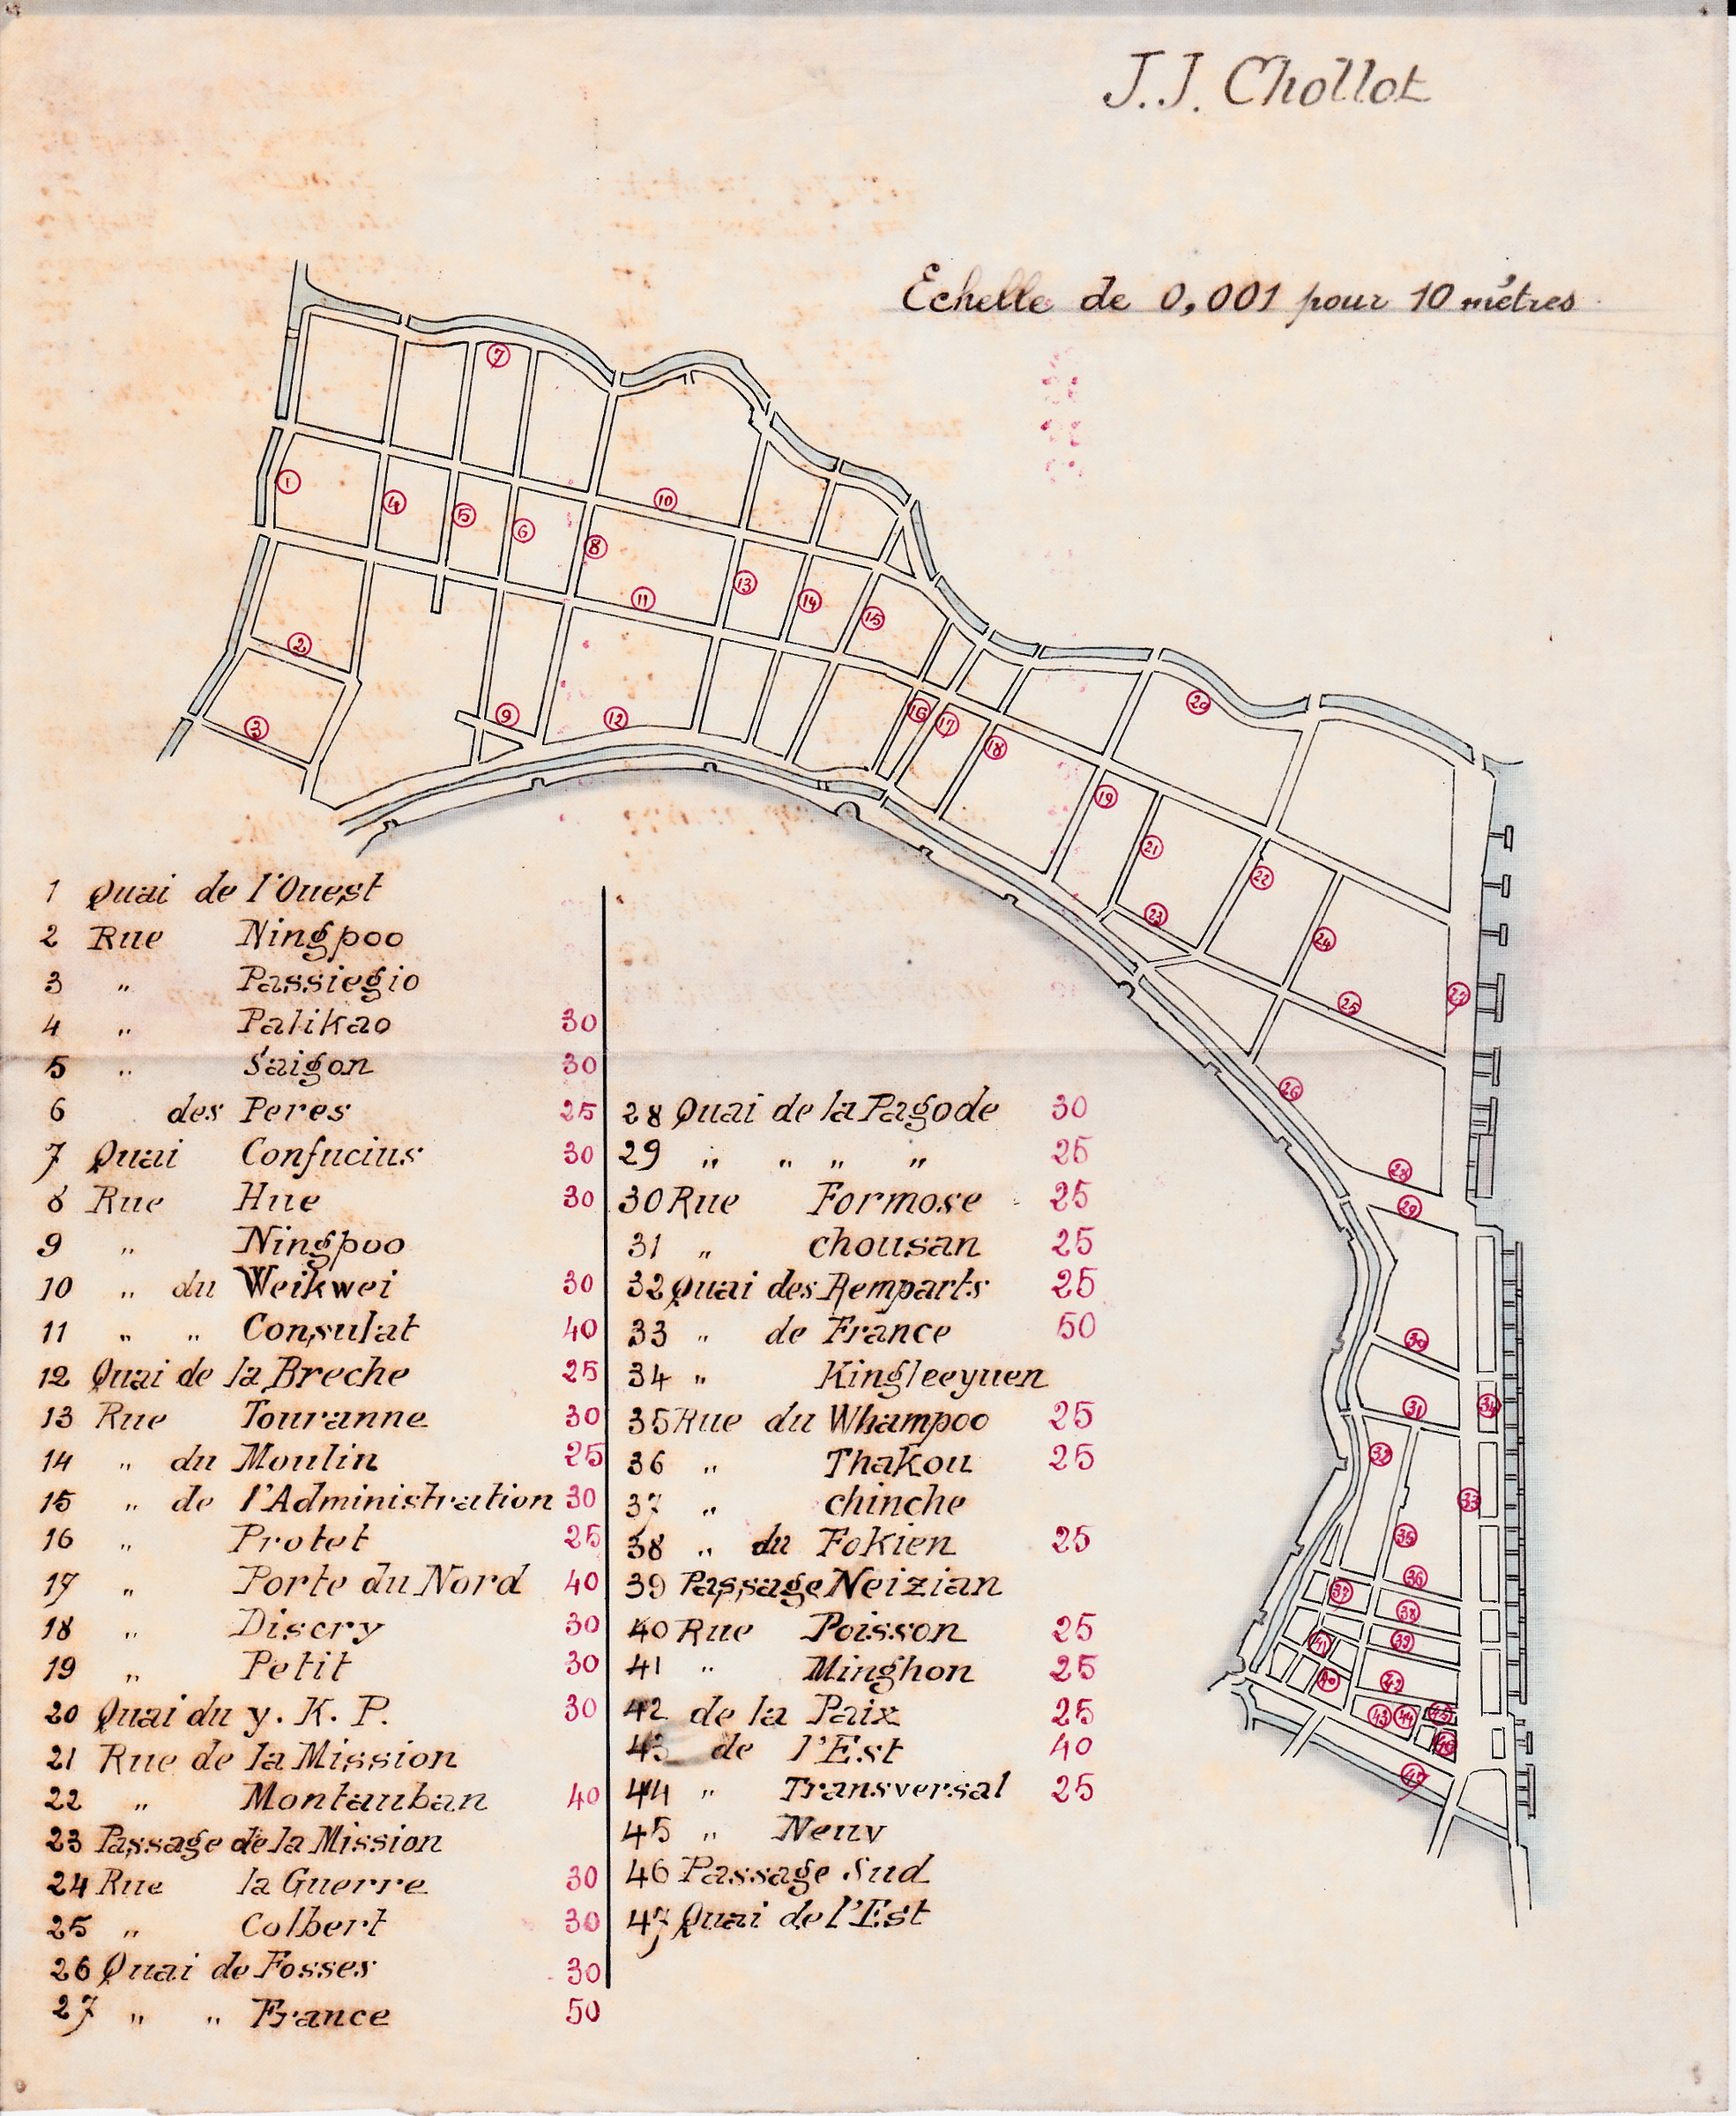 J.J. Chollot
Echelle de 0,001 pour 10 métres
1 Quai de l'Ouest
2 Rue Ningpoo
3 " Passiegio
4 " Palikao 30
5 " Saigon 30
6 des Peres 25
7 Quai Confucius 30
8 Rue Hue 30
9 " Ningpoo
10 " du Weikwei 30
11 " " Consulat 40
12 Quai de la Breche 25
13 Rue Touranne 30
14 " du Moulin 25
15 " de l'Administration 30
16 " Protet 25
17 " Porte du Nord 40
18 " Discry 30
19 " Petit 30
20 Quai du y. K. P. 30
21 Rue de la Mission
22 " Montauban 40
23 Passage de la Mission
24 Rue la Guerre 30
25 " Colbert 30
26 Quai de Fosses 30
27 " " France 50
28 Quai de la Pagode 30
29 " " " " 25
30 Rue Formose 25
31 " chousan 25
32 Quai des Remparts 25
33 " de France 50
34 " Kingleeyuen
35 Rue du Whampoo 25
36 " Thakou 25
37 " chinche
38 " du Fokien 25
39 Passage Neizian
40 Rue Poisson 25
41 " Minghon 25
42 de la Paix 25
43 de l'Est 40
44 " Transversal 25
45 " Neuv
46 Passage Sud
47 Quai de l'Est
7
1
4
5
6
8
10
11
13
14
15
2
3
9
12
16
17
18
20
19
21
22
23
24
25
27
26
28
29
30
31
34
32
33
35
36
37
38
39
41
40
42
43
44
45
46
47